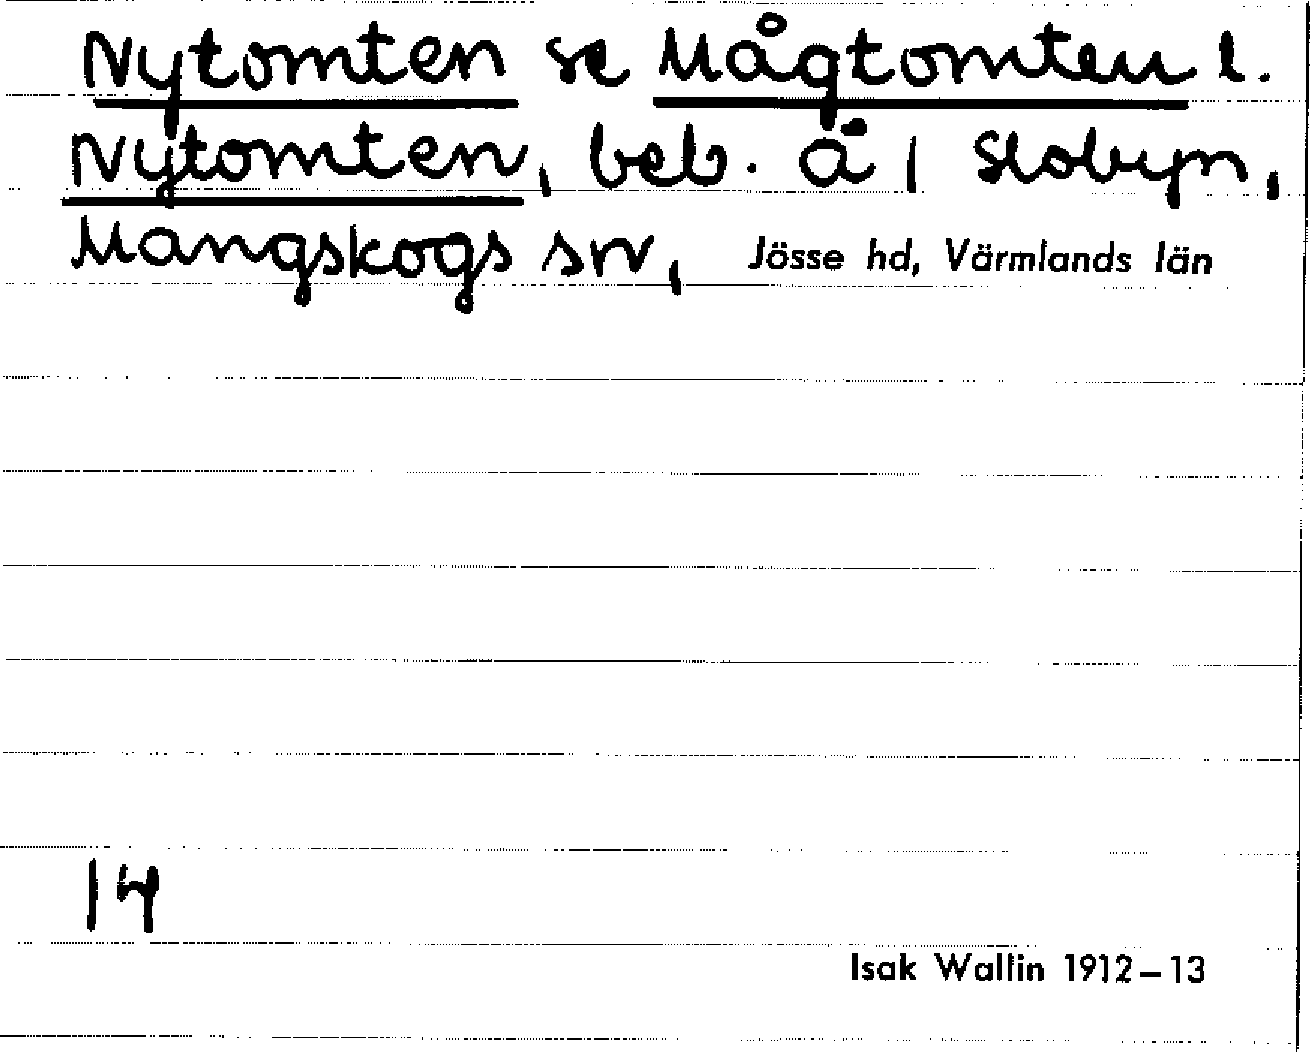 Nytomten se Mågtomten l.
Nytomten, beb. å 1 Slobyn,
Mangskogs sn, Jösse hd, Värmlands län
14
Isak Wallin 1912–13